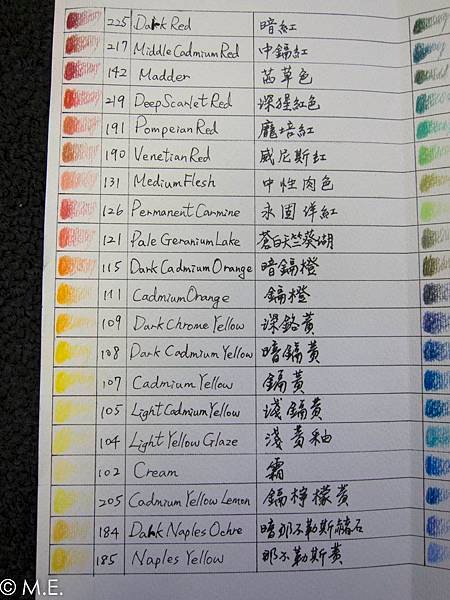 225 Dark Red 暗紅
217 Middle Cadmium Red 中鎘紅
142 Madder 茜草色
219 Deep Scarlet Red 深猩紅色
191 Pompeian Red 龐培紅
190 Venetian Red 威尼斯紅
131 Medium Flesh 中性肉色
126 Permanent Carmine 永固洋紅
121 Pale Geranium Lake 蒼白天竺葵湖
115 Dark Cadmium Orange 暗鎘橙
111 Cadmium Orange 鎘橙
109 Dark Chrome Yellow 深鉻黃
108 Dark Cadmium Yellow 暗鎘黃
107 Cadmium Yellow 鎘黃
105 Light Cadmium Yellow 淺鎘黃
104 Light Yellow Glaze 淺黃釉
102 Cream 霜
205 Cadmium Yellow Lemon 鎘檸檬黃
184 Dark Naples Ochre 暗那不勒斯赭石
185 Naples Yellow 那不勒斯黃
© M.E.